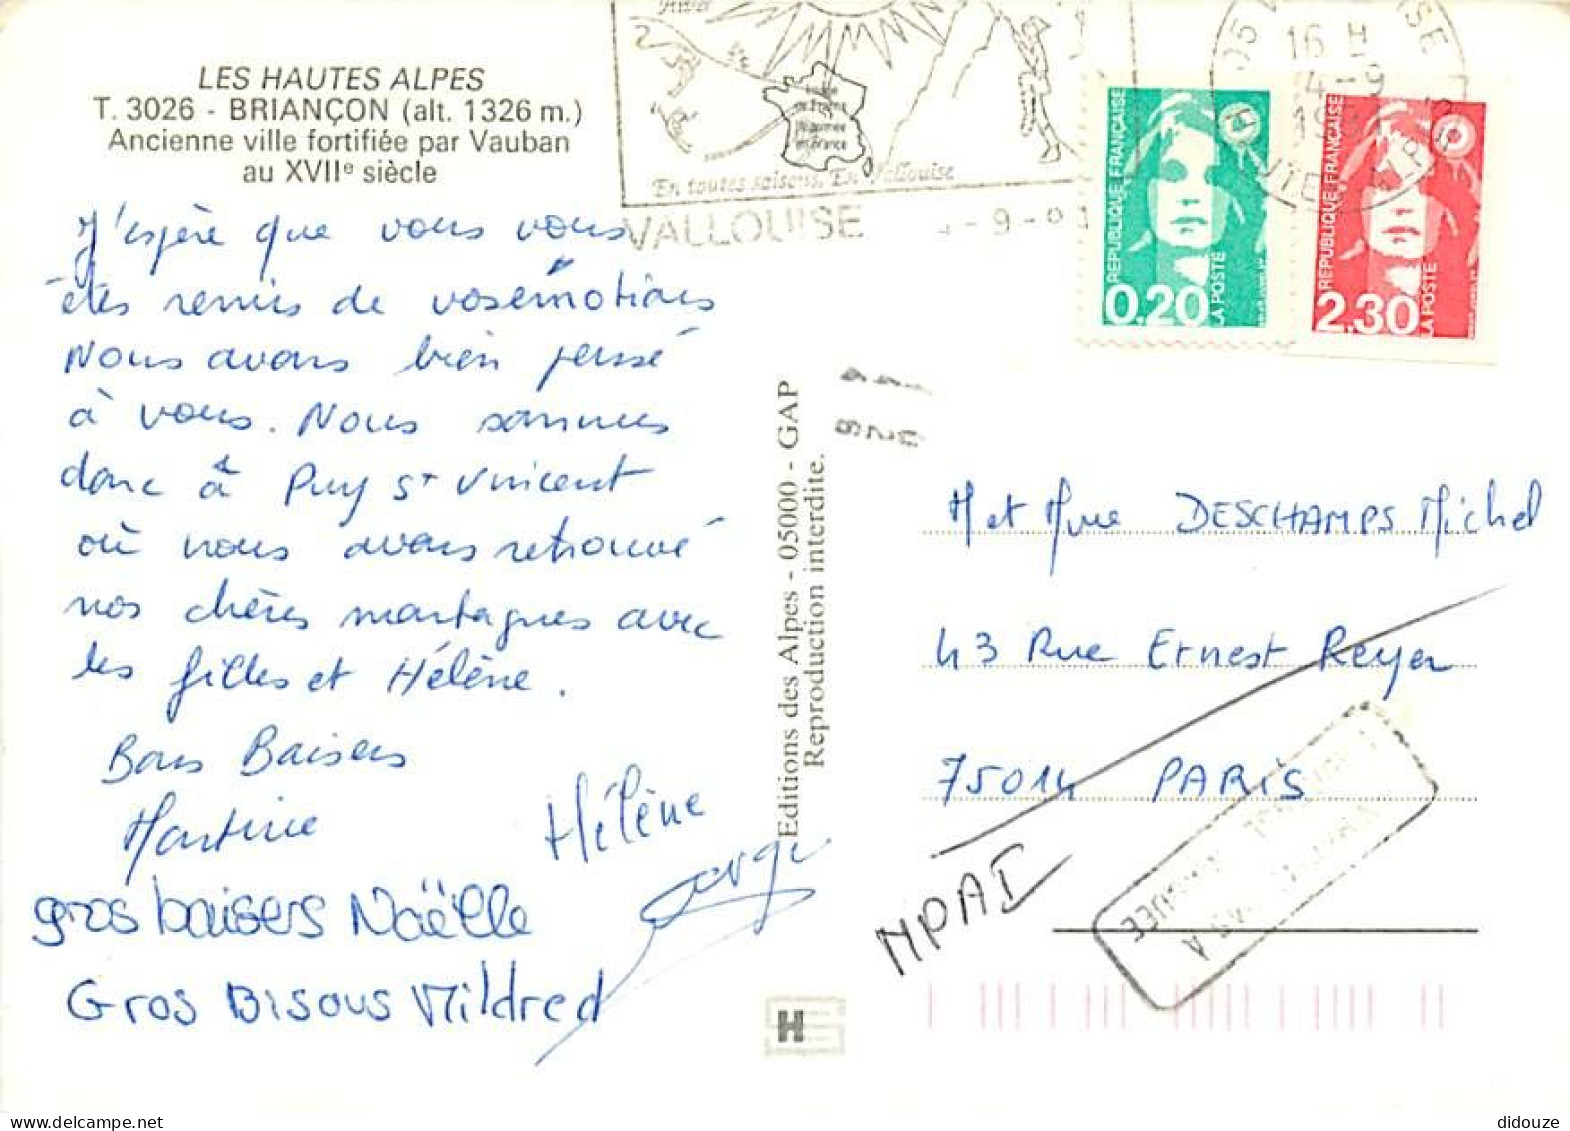 LES HAUTES ALPES
T. 3026 - BRIANÇON (alt. 1326 m.)
Ancienne ville fortifiée par Vauban
au XVIIe siècle
J'espère que vous vous
êtes remis de vos émotions
Nous avons bien pensé
à vous. Nous sommes
donc à Puy St Vincent
où nous avons retrouvé
nos chères montagnes avec
les filles et Hélène.
Bons Baisers
Martine
Hélène
gros baisers Naëlle
Gros Bisous Mildred
Editions des Alpes - 05000 - GAP
Reproduction interdite.
H
Hiver
En toutes saisons, En Vallouise
VALLOUISE
16 H
REPUBLIQUE FRANÇAISE
0,20
LA POSTE
REPUBLIQUE FRANÇAISE
2,30
LA POSTE
M et Mme DESCHAMPS Michel
43 Rue Ernest Reyer
75014 PARIS
NPAI
didouze